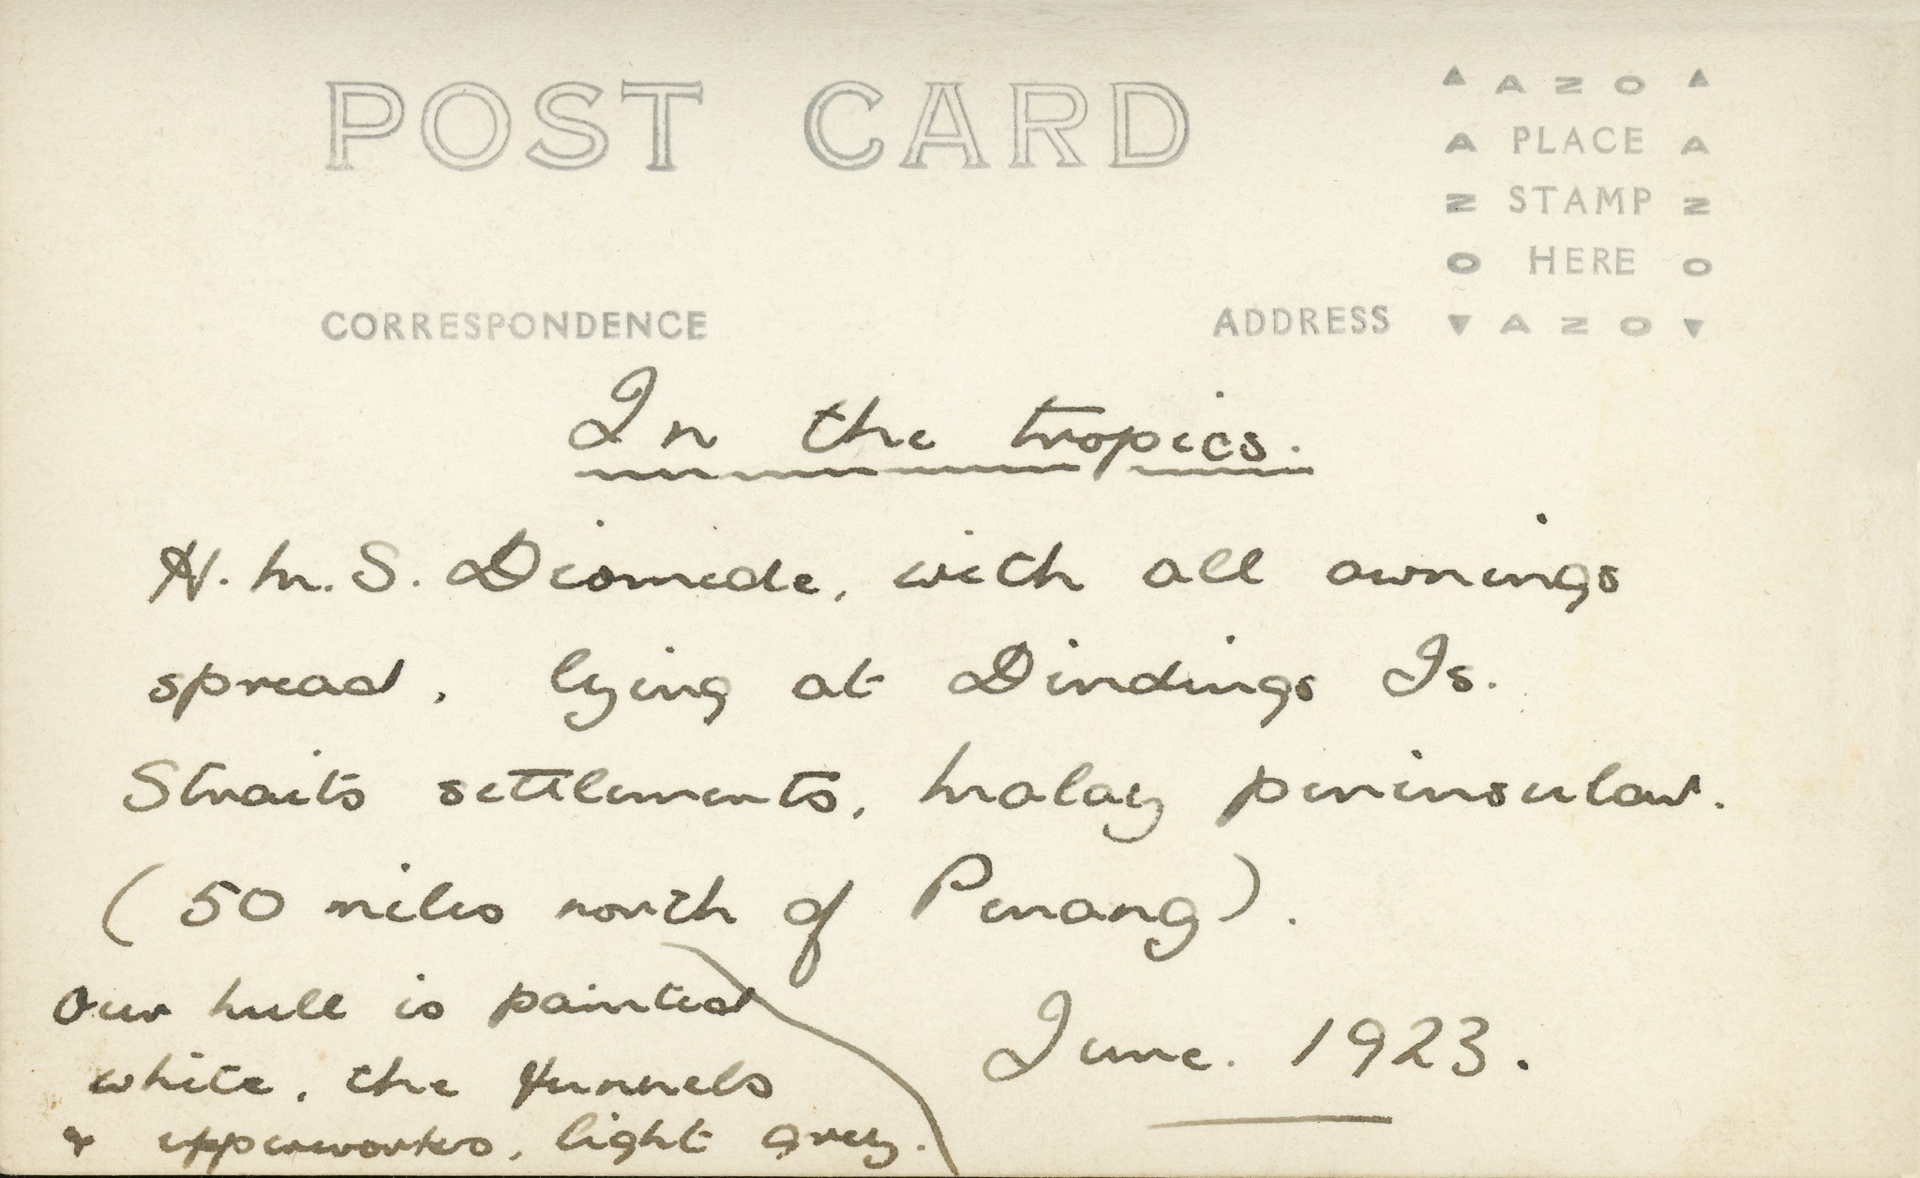 POST CARD
▲ A Z O ▲
A PLACE A
Z STAMP Z
O HERE O
▼ A Z O ▼
CORRESPONDENCE
ADDRESS
In the tropics.
H.M.S. Diomede, with all awnings
spread, lying at Dindings Is.
Straits settlements, Malay peninsular.
(50 miles north of Penang).
Our hull is painted
white, the funnels
& upperworks, light grey.
June. 1923.